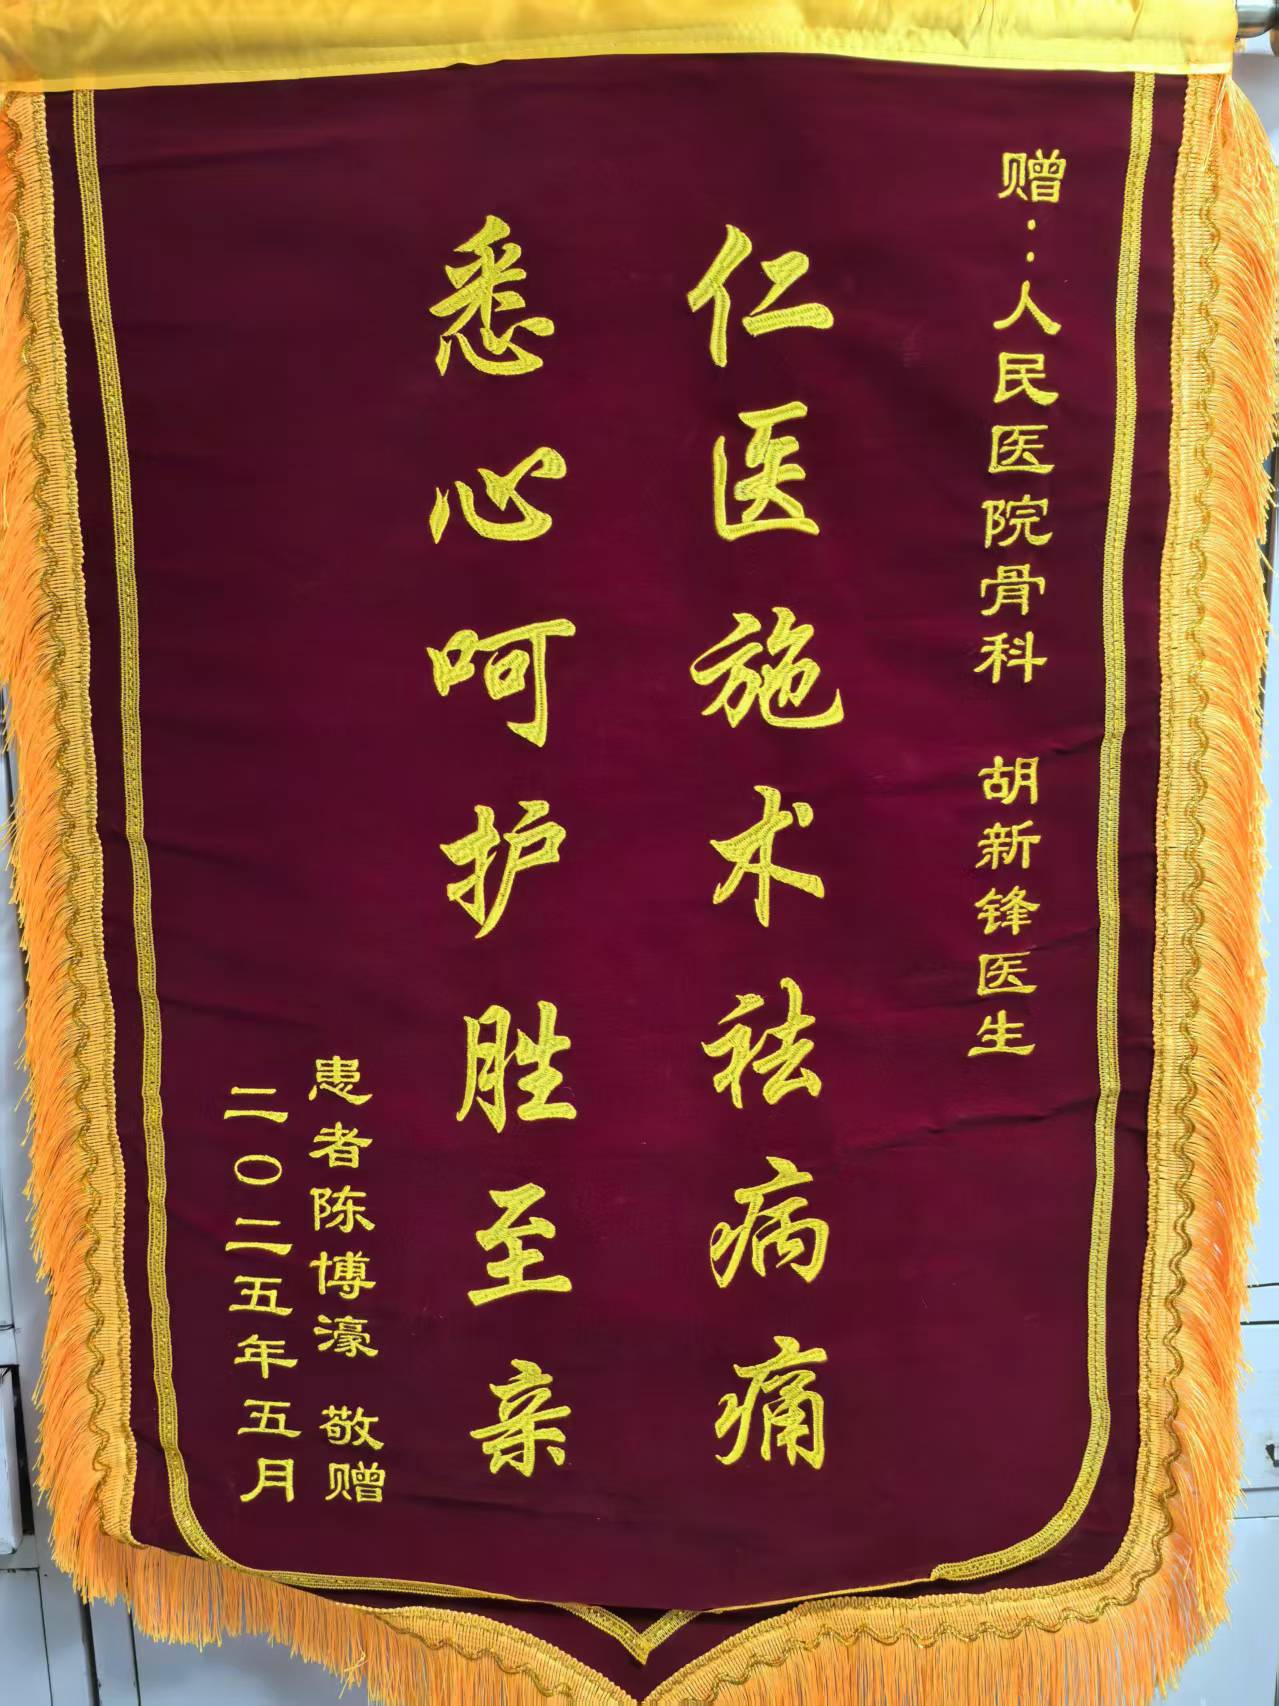 赠：人民医院骨科 胡新锋医生
仁医施术祛病痛
悉心呵护胜至亲
患者陈博濠 敬赠
二〇二五年五月